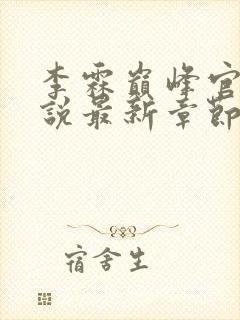 李霖巔峰官
說最新章節
宿舍生